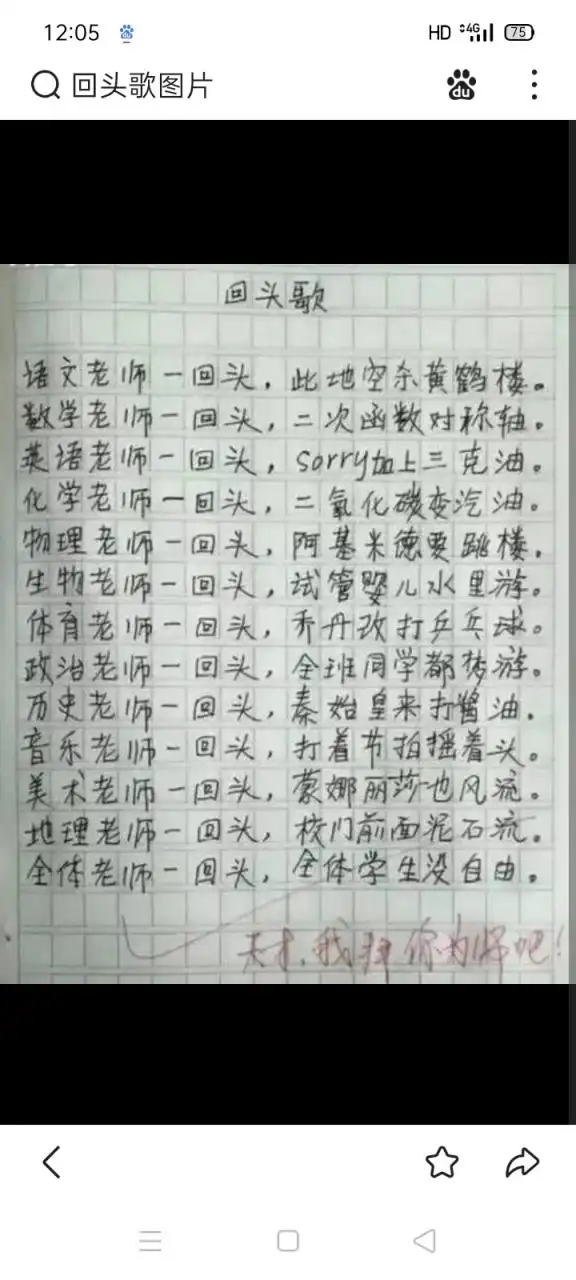 12:05
HD 4G 75
回头歌图片
du
回头歌
语文老师一回头，此地空余黄鹤楼。
数学老师一回头，二次函数对称轴。
英语老师一回头，sorry加上三克油。
化学老师一回头，二氧化碳变汽油。
物理老师一回头，阿基米德要跳楼。
生物老师一回头，试管婴儿水里游。
体育老师一回头，乔丹改打乒乓球。
政治老师一回头，全班同学都梦游。
历史老师一回头，秦始皇来打酱油.
音乐老师一回头，打着节拍摇着头。
美术老师一回头，蒙娜丽莎也风流。
地理老师一回头，校门前面泥石流.
全体老师一回头，全体学生没自由。
天才，我拜你为师吧！